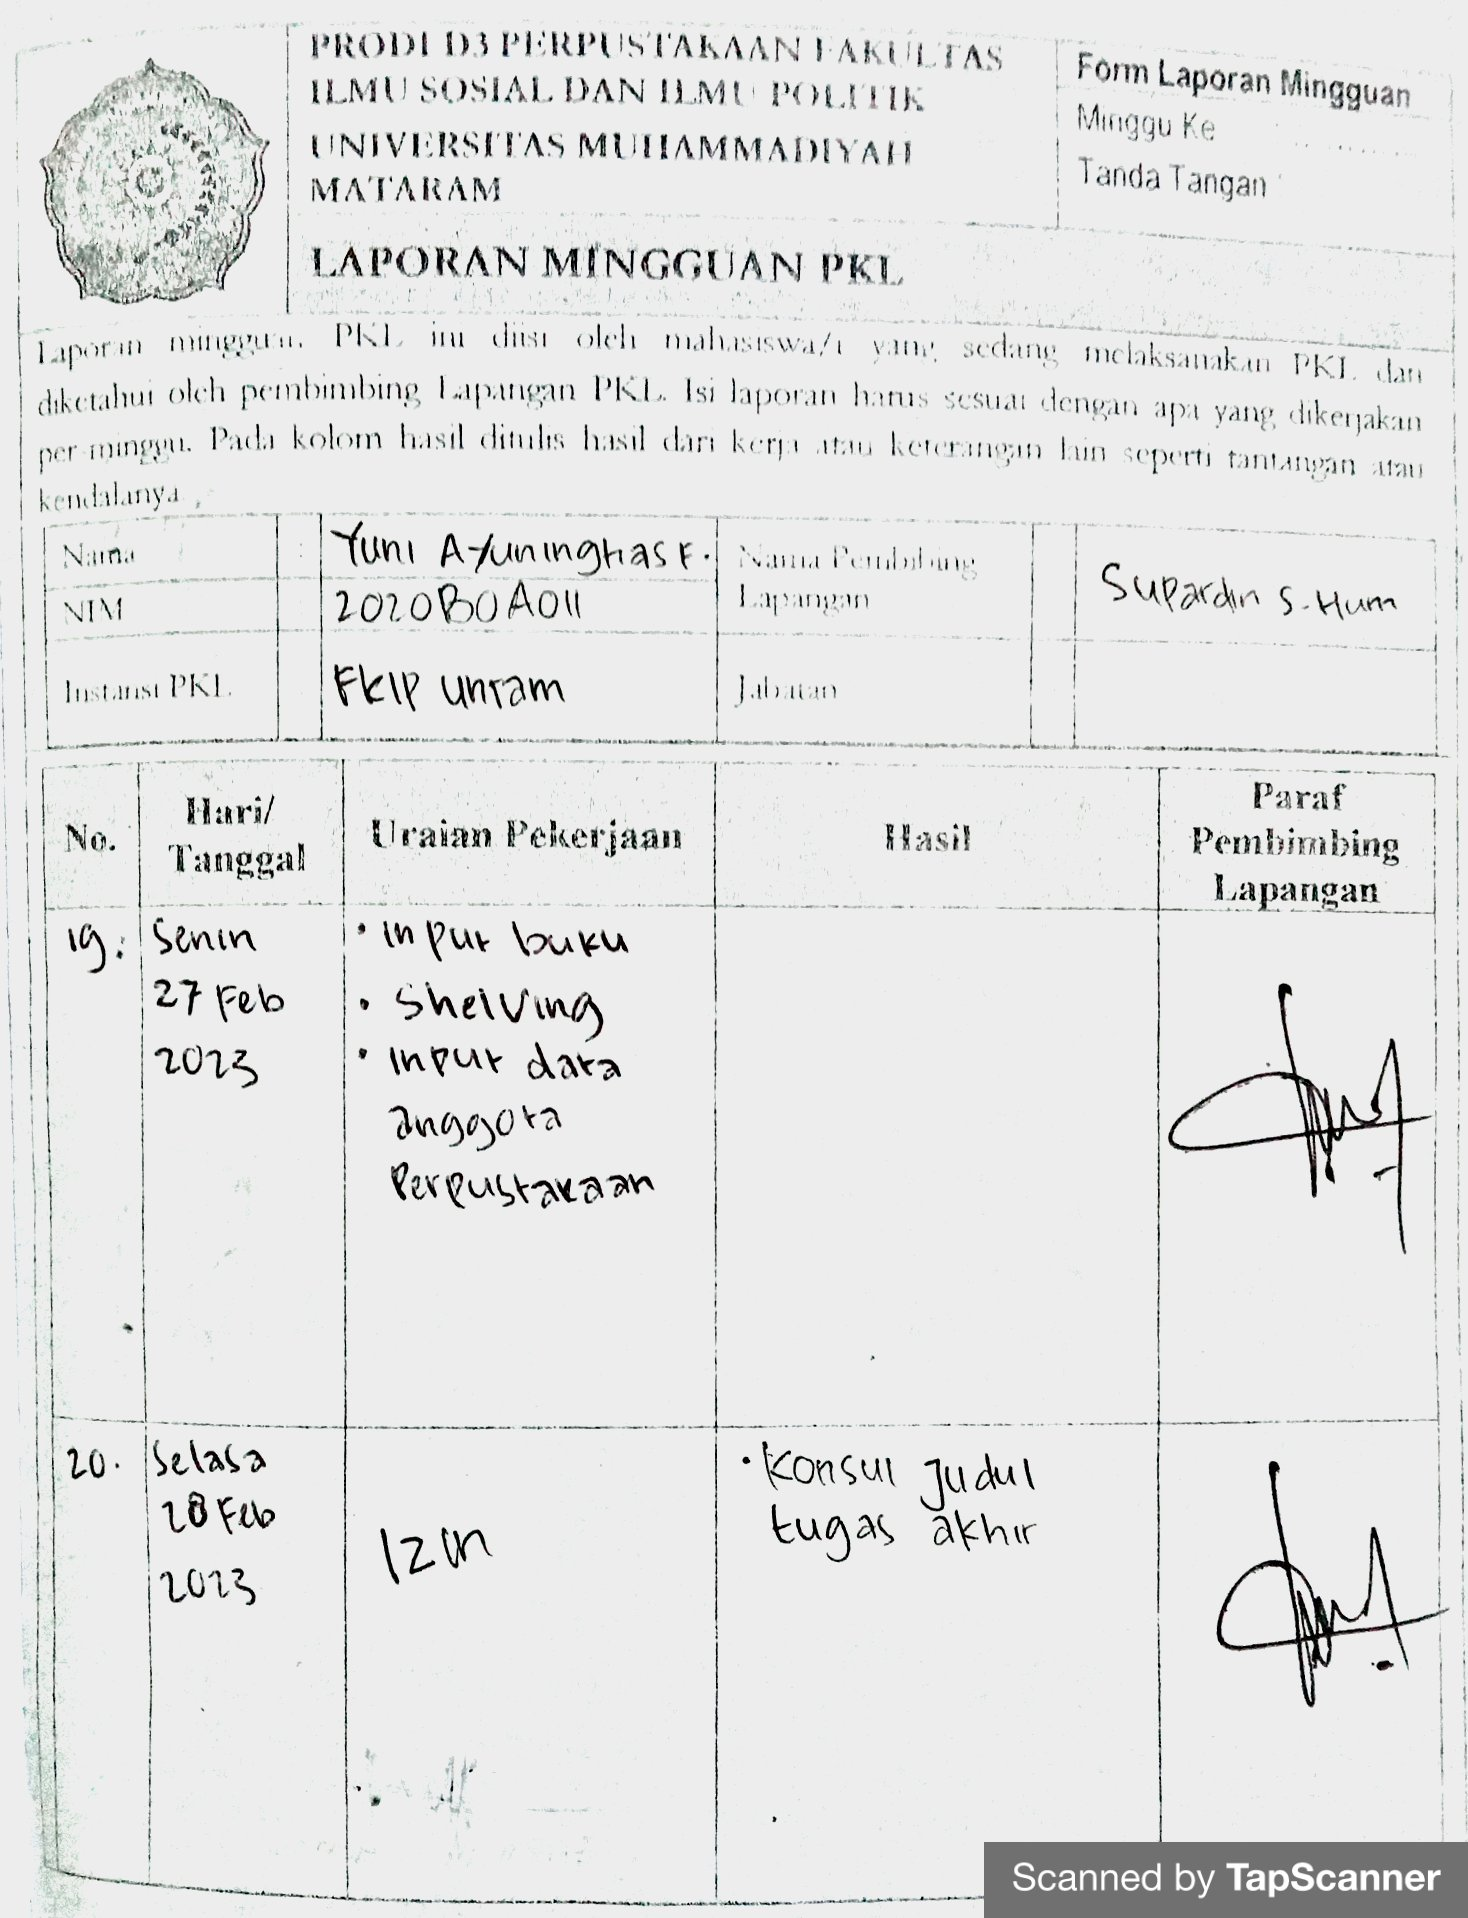 PRODI D3 PERPUSTAKAAN FAKULTAS
ILMU SOSIAL DAN ILMU POLITIK
UNIVERSITAS MUHAMMADIYAH
MATARAM
LAPORAN MINGGUAN PKL
Form Laporan Mingguan
Minggu Ke ..........
Tanda Tangan
Laporan mingguan PKL ini diisi oleh mahasiswa/i yang sedang melaksanakan PKL dan
diketahui oleh pembimbing Lapangan PKL. Isi laporan harus sesuai dengan apa yang dikerjakan
per-minggu. Pada kolom hasil ditulis hasil dari kerja atau keterangan lain seperti tantangan atau
kendalanya.
Nama : Yuni Ayuningtias F.
NIM 2020B0A011
Nama Pembibing
Lapangan
Supardin S.Hum
Instansi PKL FKIP Unram
Jabatan
No.
Hari/
Tanggal
Uraian Pekerjaan
Hasil
Paraf
Pembimbing
Lapangan
19.
Senin
27 Feb
2023
• Input buku
• Shelving
• Input data
anggota
Perpustakaan
20.
Selasa
28 Feb
2023
Izin
• Konsul Judul
tugas akhir
Scanned by TapScanner